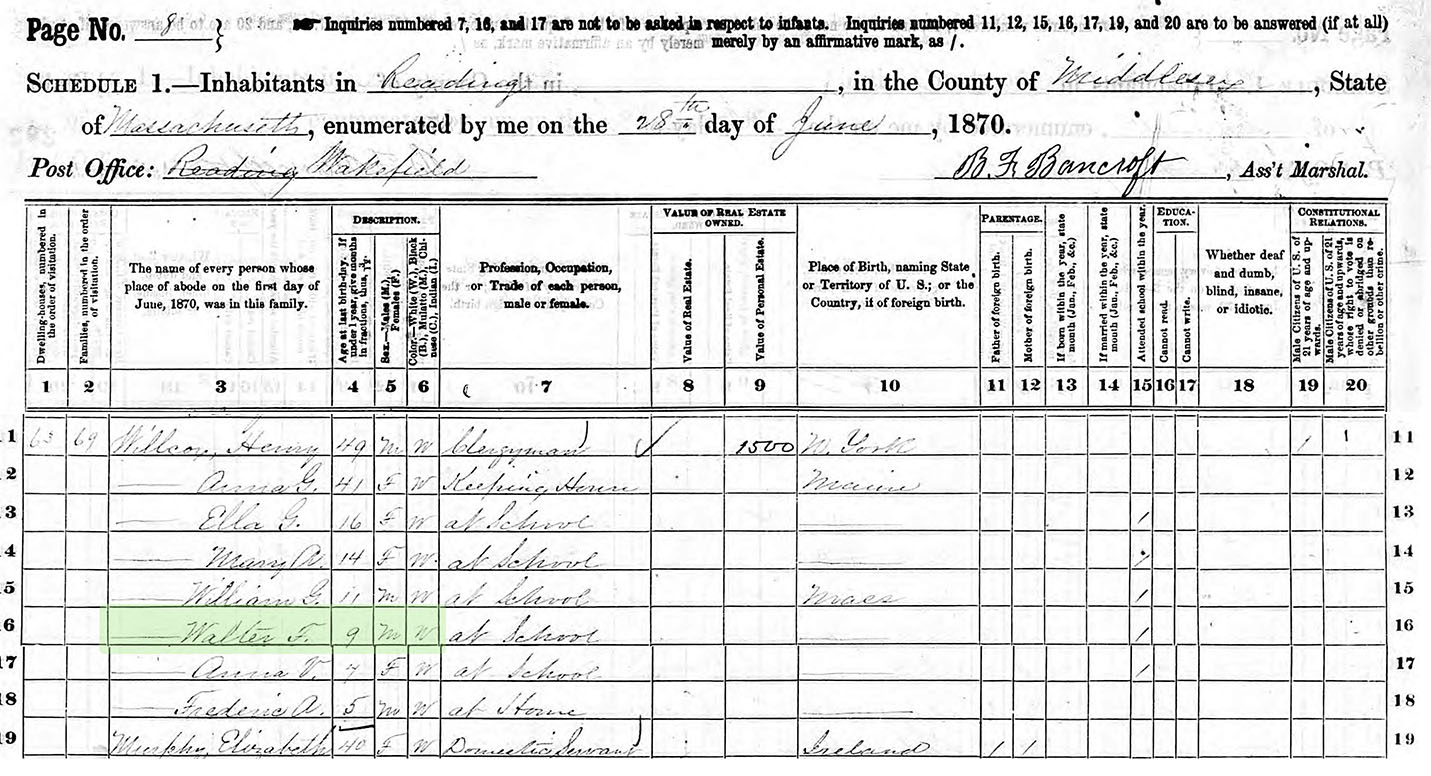 Page No. 8 } ☛ Inquiries numbered 7, 16, and 17 are not to be asked in respect to infants. Inquiries numbered 11, 12, 15, 16, 17, 19, and 20 are to be answered (if at all)
merely by an affirmative mark, as /.
SCHEDULE 1.—Inhabitants in Reading, in the County of Middlesex, State
of Massachusetts, enumerated by me on the 28th day of June, 1870.
Post Office: Reading Wakefield B. F. Bancroft, Ass't Marshal.
Dwelling-houses, numbered in the order of visitation.
Families, numbered in the order of visitation.
The name of every person whose place of abode on the first day of June, 1870, was in this family.
DESCRIPTION.
Age at last birth-day. If under 1 year, give months in fractions, thus,
Sex.—Males (M.), Females (F.)
Color.—White (W.), Black (B.), Mulatto (M.), Chinese (C.), Indian (I.)
Profession, Occupation, or Trade of each person, male or female.
VALUE OF REAL ESTATE OWNED.
Value of Real Estate.
Value of Personal Estate.
Place of Birth, naming State or Territory of U. S.; or the Country, if of foreign birth.
PARENTAGE.
Father of foreign birth.
Mother of foreign birth.
If born within the year, state month (Jan., Feb., &c.)
If married within the year, state month (Jan., Feb., &c.)
Attended school within the year.
EDUCATION.
Cannot read.
Cannot write.
Whether deaf and dumb, blind, insane, or idiotic.
CONSTITUTIONAL RELATIONS.
Male Citizens of U. S. of 21 years of age and upwards.
Male Citizens of U. S. of 21 years of age and upwards, whose right to vote is denied or abridged on other grounds than rebellion or other crime.
1 2 3 4 5 6 7 8 9 10 11 12 13 14 15 16 17 18 19 20
11 63 69 Willcox, Henry 49 M W Clergyman 1500 N. York 1 1 11
12 —— Anna G. 41 F W Keeping House Maine 12
13 —— Ella G. 16 F W at School —— / 13
14 —— Mary A. 14 F W at School —— / 14
15 —— William G. 11 M W at School Mass / 15
16 —— Walter F. 9 M W at School —— / 16
17 —— Anna V. 7 F W at School —— / 17
18 —— Frederic A. 5 M W at Home —— 18
19 Murphy, Elizabeth 40 F W Domestic Servant Ireland 1 1 19